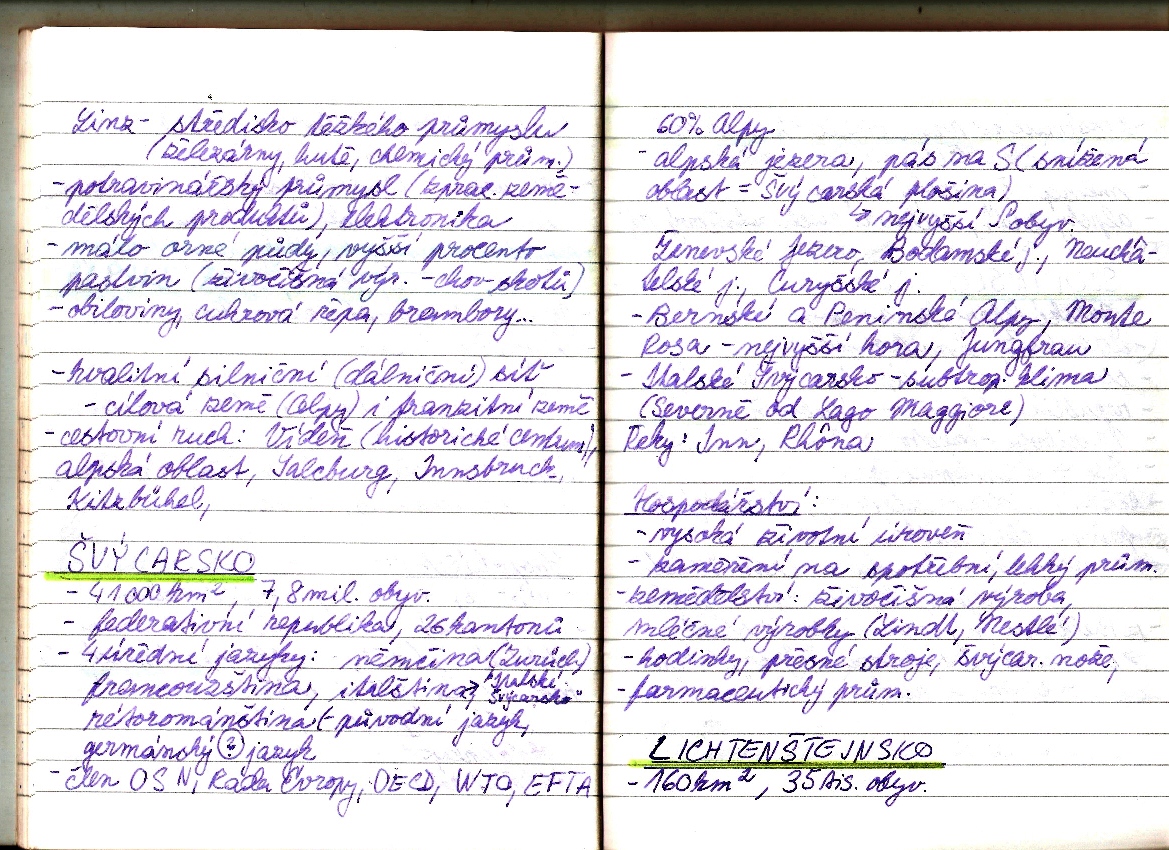 Linz - středisko těžkého průmyslu
(železárny, hutě, chemický prům.)
- potravinářský průmysl (zprac. země-
dělských produktů), elektronika
- málo orné půdy, vyšší procento
pastvin (živočišná výr. - chov skotu)
- obiloviny, cukrová řepa, brambory...
- kvalitní silniční (dálniční) síť
- cílová země (Alpy) i tranzitní země
- cestovní ruch: Vídeň (historické centrum),
alpská oblast, Salcburg, Innsbruck,
Kitzbühel,
ŠVÝCARSKO
- 41 000 km², 7,8 mil. obyv.
- federativní republika, 26 kantonů
- 4 úřední jazyky: němčina (Zürüch)
francouzština, italština → "Italské Švýcarsko"
rétorománština (- původní jazyk,
germánský ? jazyk
- člen OSN, Rada Evropy, OECD, WTO, EFTA
60% Alpy
- alpská jezera, pás na S (snížená
oblast = Švýcarská plošina)
↳ nejvyšší obyv.
Ženevské jezero, Bodamské j., Neuchâ-
telské j., Curyšské j.
- Bernské a Peninské Alpy, Monte
Rosa - nejvyšší hora, Jungfrau
- Italské Švýcarsko - subtrop. klima
(Severně od Lago Maggiore)
Řeky: Inn, Rhôna
Hospodářství:
- vysoká životní úroveň
- zaměření na spotřební, lehký prům.
- zemědělství: živočišná výroba,
mléčné výrobky (Lindt, Nestlé)
- hodinky, přesné stroje, švýcar. nože,
- farmaceutický prům.
LICHTENŠTEJNSKO
- 160 km², 35 tis. obyv.